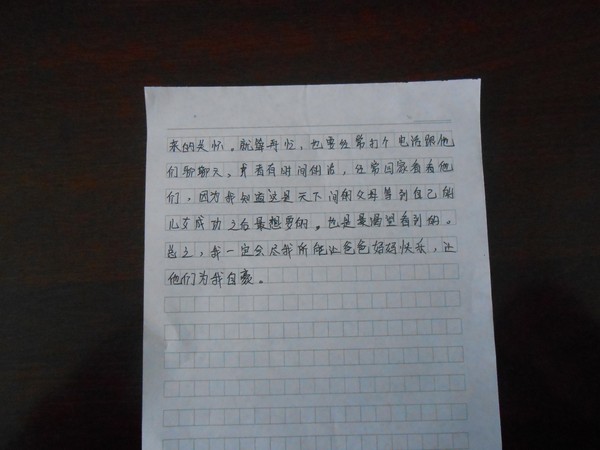 来的关怀。就算再忙，也要经常打个电话跟他
们聊聊天。或者有时间的话，经常回家看看他
们，因为我知道这是天下间的父母等到自己的
儿女成功之后最想要的。也是最渴望看到的。
总之，我一定会尽我所能让爸爸妈妈快乐，让
他们为我自豪。